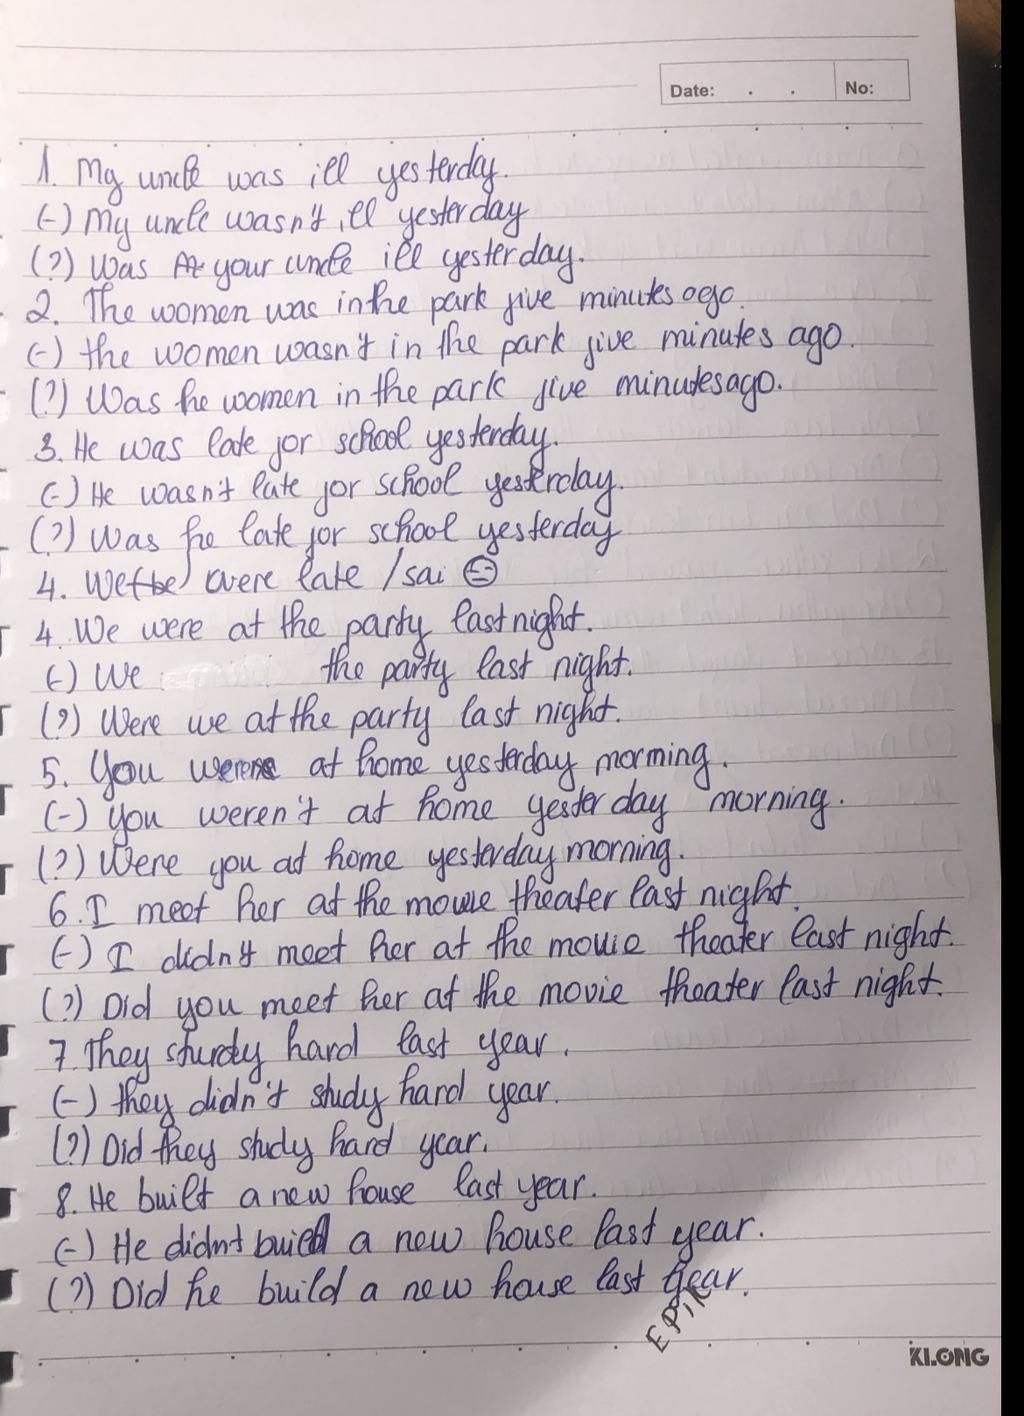 Date: . . No:
1. My uncle was ill yesterday.
(-) My uncle wasn't ill yesterday
(?) Was your uncle ill yesterday.
2. The women was in the park five minutes ago.
(-) the women wasn't in the park five minutes ago.
(?) Was he women in the park five minutes ago.
3. He was late for school yesterday.
(-) He wasn't late for school yesterday.
(?) Was he late for school yesterday
4. We (be) were late /sai
4. We were at the party last night.
(-) We the party last night.
(?) Were we at the party last night.
5. You were at home yesterday morming.
(-) you weren't at home yesterday morning.
(?) Were you at home yesterday morning.
6. I meet her at the movie theater last night.
(-) I didn't meet her at the movie theater last night.
(?) Did you meet her at the movie theater last night.
7. They sturdy hard last year.
(-) they didn't study hard year.
(?) Did they study hard year.
8. He built a new house last year.
(-) He didnt build a new house last year.
(?) Did he build a new house last year.
KLONG